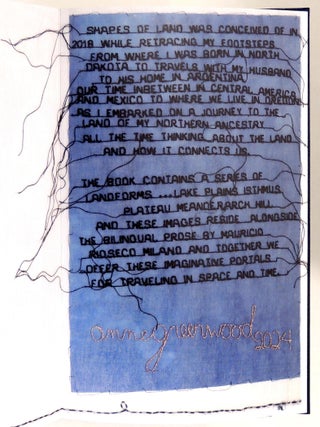 SHAPES OF LAND WAS CONCEIVED OF IN
2018 WHILE RETRACING MY FOOTSTEPS
FROM WHERE I WAS BORN IN NORTH
DAKOTA TO TRAVELS WITH MY HUSBAND
TO HIS HOME IN ARGENTINA,
OUR TIME INBETWEEN IN CENTRAL AMERICA
AND MEXICO TO WHERE WE LIVE IN OREGON.
AS I EMBARKED ON A JOURNEY TO THE
LAND OF MY NORTHERN ANCESTRY
ALL THE TIME THINKING ABOUT THE LAND
AND HOW IT CONNECTS US.
THE BOOK CONTAINS A SERIES OF
LANDFORMS ...LAKE PLAINS ISTHMUS
PLATEAU MEANDER ARCH HILL
AND THESE IMAGES RESIDE ALONGSIDE
THE BILINGUAL PROSE BY MAURICIO
RIOSECO MILANO AND TOGETHER WE
OFFER THESE IMAGINATIVE PORTALS
FOR TRAVELING IN SPACE AND TIME...
annegreenwood 2024